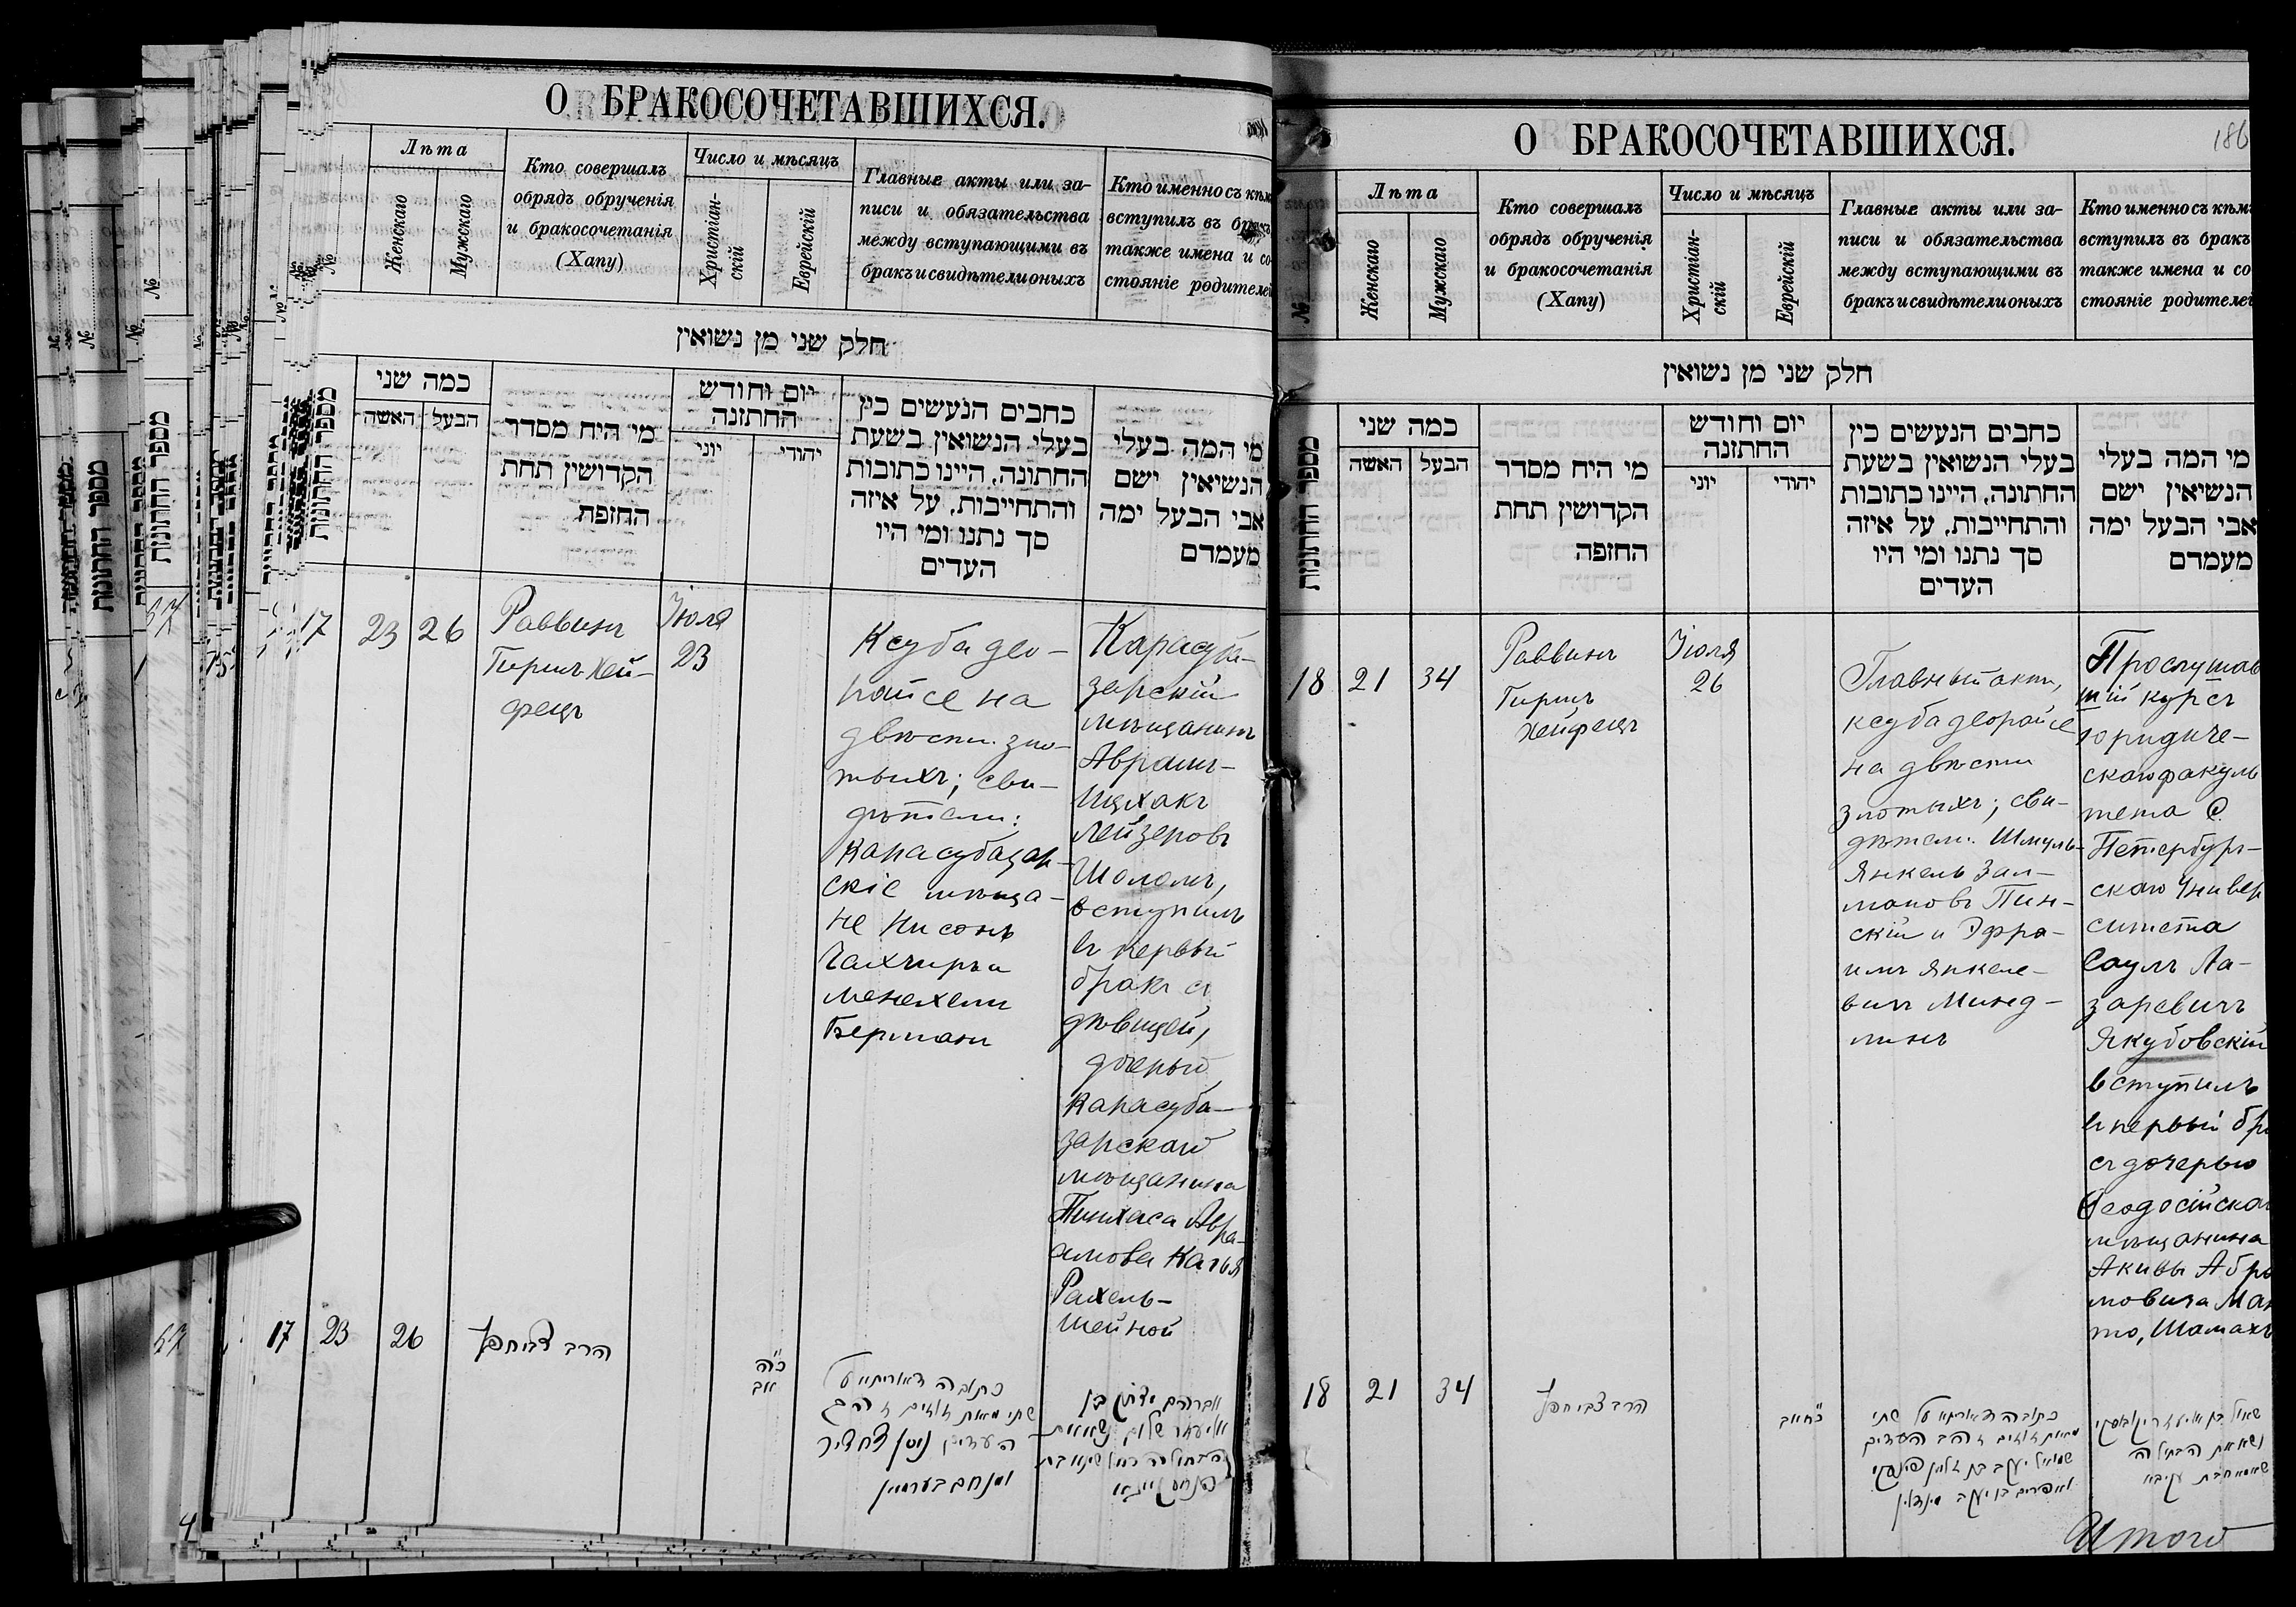 О БРАКОСОЧЕТАВШИХСЯ.
№
Лѣта
Женскаго
Мужскаго
Кто совершалъ
обрядъ обрученія
и бракосочетанія
(Хапу)
Число и мѣсяцъ
Христіан-
скій
Еврейскій
Главные акты или за-
писи и обязательства
между вступающими въ
бракъ и свидѣтели оныхъ
Кто именно съ кѣмъ
вступилъ въ бракъ
также имена и со-
стояніе родителей
חלק שני מן נשואין
מספר החתונות
כמה שני
האשה
הבעל
מי היח מסדר
הקדושין תחת
החופה
יום וחודש
החתונה
יוני
יהודי
כתבים הנעשים בין
בעלי הנשואין בשעת
החתונה, היינו כתובות
והתחייבות, על איזה
סך נתנו ומי היו
העדים
מי המה בעלי
הנשיאין ישם
אבי הבעל ימה
מעמדם
17
23
26
Раввинъ
Гиршъ Хей-
фецъ
Іюля
23
Ксуба део-
райсе на
двѣсти зло-
тыхъ; сви-
дѣтели:
Карасубазар-
скіе мѣща-
не Нисонъ
Чахчиръ и
Менахемъ
Берманъ
Карасуба-
зарскій
мѣщанинъ
Аврамъ-
Ицхакъ
Лейзеровъ
Шоломъ,
вступилъ
въ первый
бракъ съ
дѣвицей,
дочерью
Карасуба-
зарскаго
мѣщанина
Пинхаса Авра-
амова
Рахель-
Шейной
17
23
26
הרב צבי חפץ
כ"ה
אב
כתובה דאורייתא על
שתי מאות זהובים
העדים ניסן צחציר
ומנחם בערמאן
אברהם יצחק בן
אליעזר שלום נשא את
הבתולה רחל שיינא בת
פנחס
О БРАКОСОЧЕТАВШИХСЯ.
186
№
Лѣта
Женскаго
Мужскаго
Кто совершалъ
обрядъ обрученія
и бракосочетанія
(Хапу)
Число и мѣсяцъ
Христіан-
скій
Еврейскій
Главные акты или за-
писи и обязательства
между вступающими въ
бракъ и свидѣтели оныхъ
Кто именно съ кѣмъ
вступилъ въ бракъ
также имена и со
стояніе родителей
חלק שני מן נשואין
מספר החתונות
כמה שני
האשה
הבעל
מי היח מסדר
הקדושין תחת
החופה
יום וחודש
החתונה
יוני
יהודי
כתבים הנעשים בין
בעלי הנשואין בשעת
החתונה, היינו כתובות
והתחייבות, על איזה
סך נתנו ומי היו
העדים
מי המה בעלי
הנשיאין ישם
אבי הבעל ימה
מעמדם
18
21
34
Раввинъ
Гиршъ
Хейфецъ
Іюля
26
Главный актъ,
ксуба деорайсе
на двѣсти
злотыхъ; сви-
дѣтели: Шмуль-
Янкель Зал-
мановъ Пин-
скій и Эфра-
имъ Янкеле-
вичъ Минд-
линъ
Прослушав
шій курсъ
юридиче-
скаго факуль
тета С.
Петербург-
скаго Универ
ситета
Саулъ Ла-
заревичъ
Якубовскій
вступилъ
въ первый бра
съ дочерью
Ѳеодосійскаго
мѣщанина
Акивы Абра
мовича Ман
то,
18
21
34
הרב צבי חפץ
כ"ח אב
כתובה דאורייתא על שתי
מאות זהובים העדים
שמואל יעקב בן זלמן פינסקי
ואפרים בן יעקב מינדלין
שאול בן אליעזר יקובסקי
נשא את הבתולה
בת עקיבא
Итого